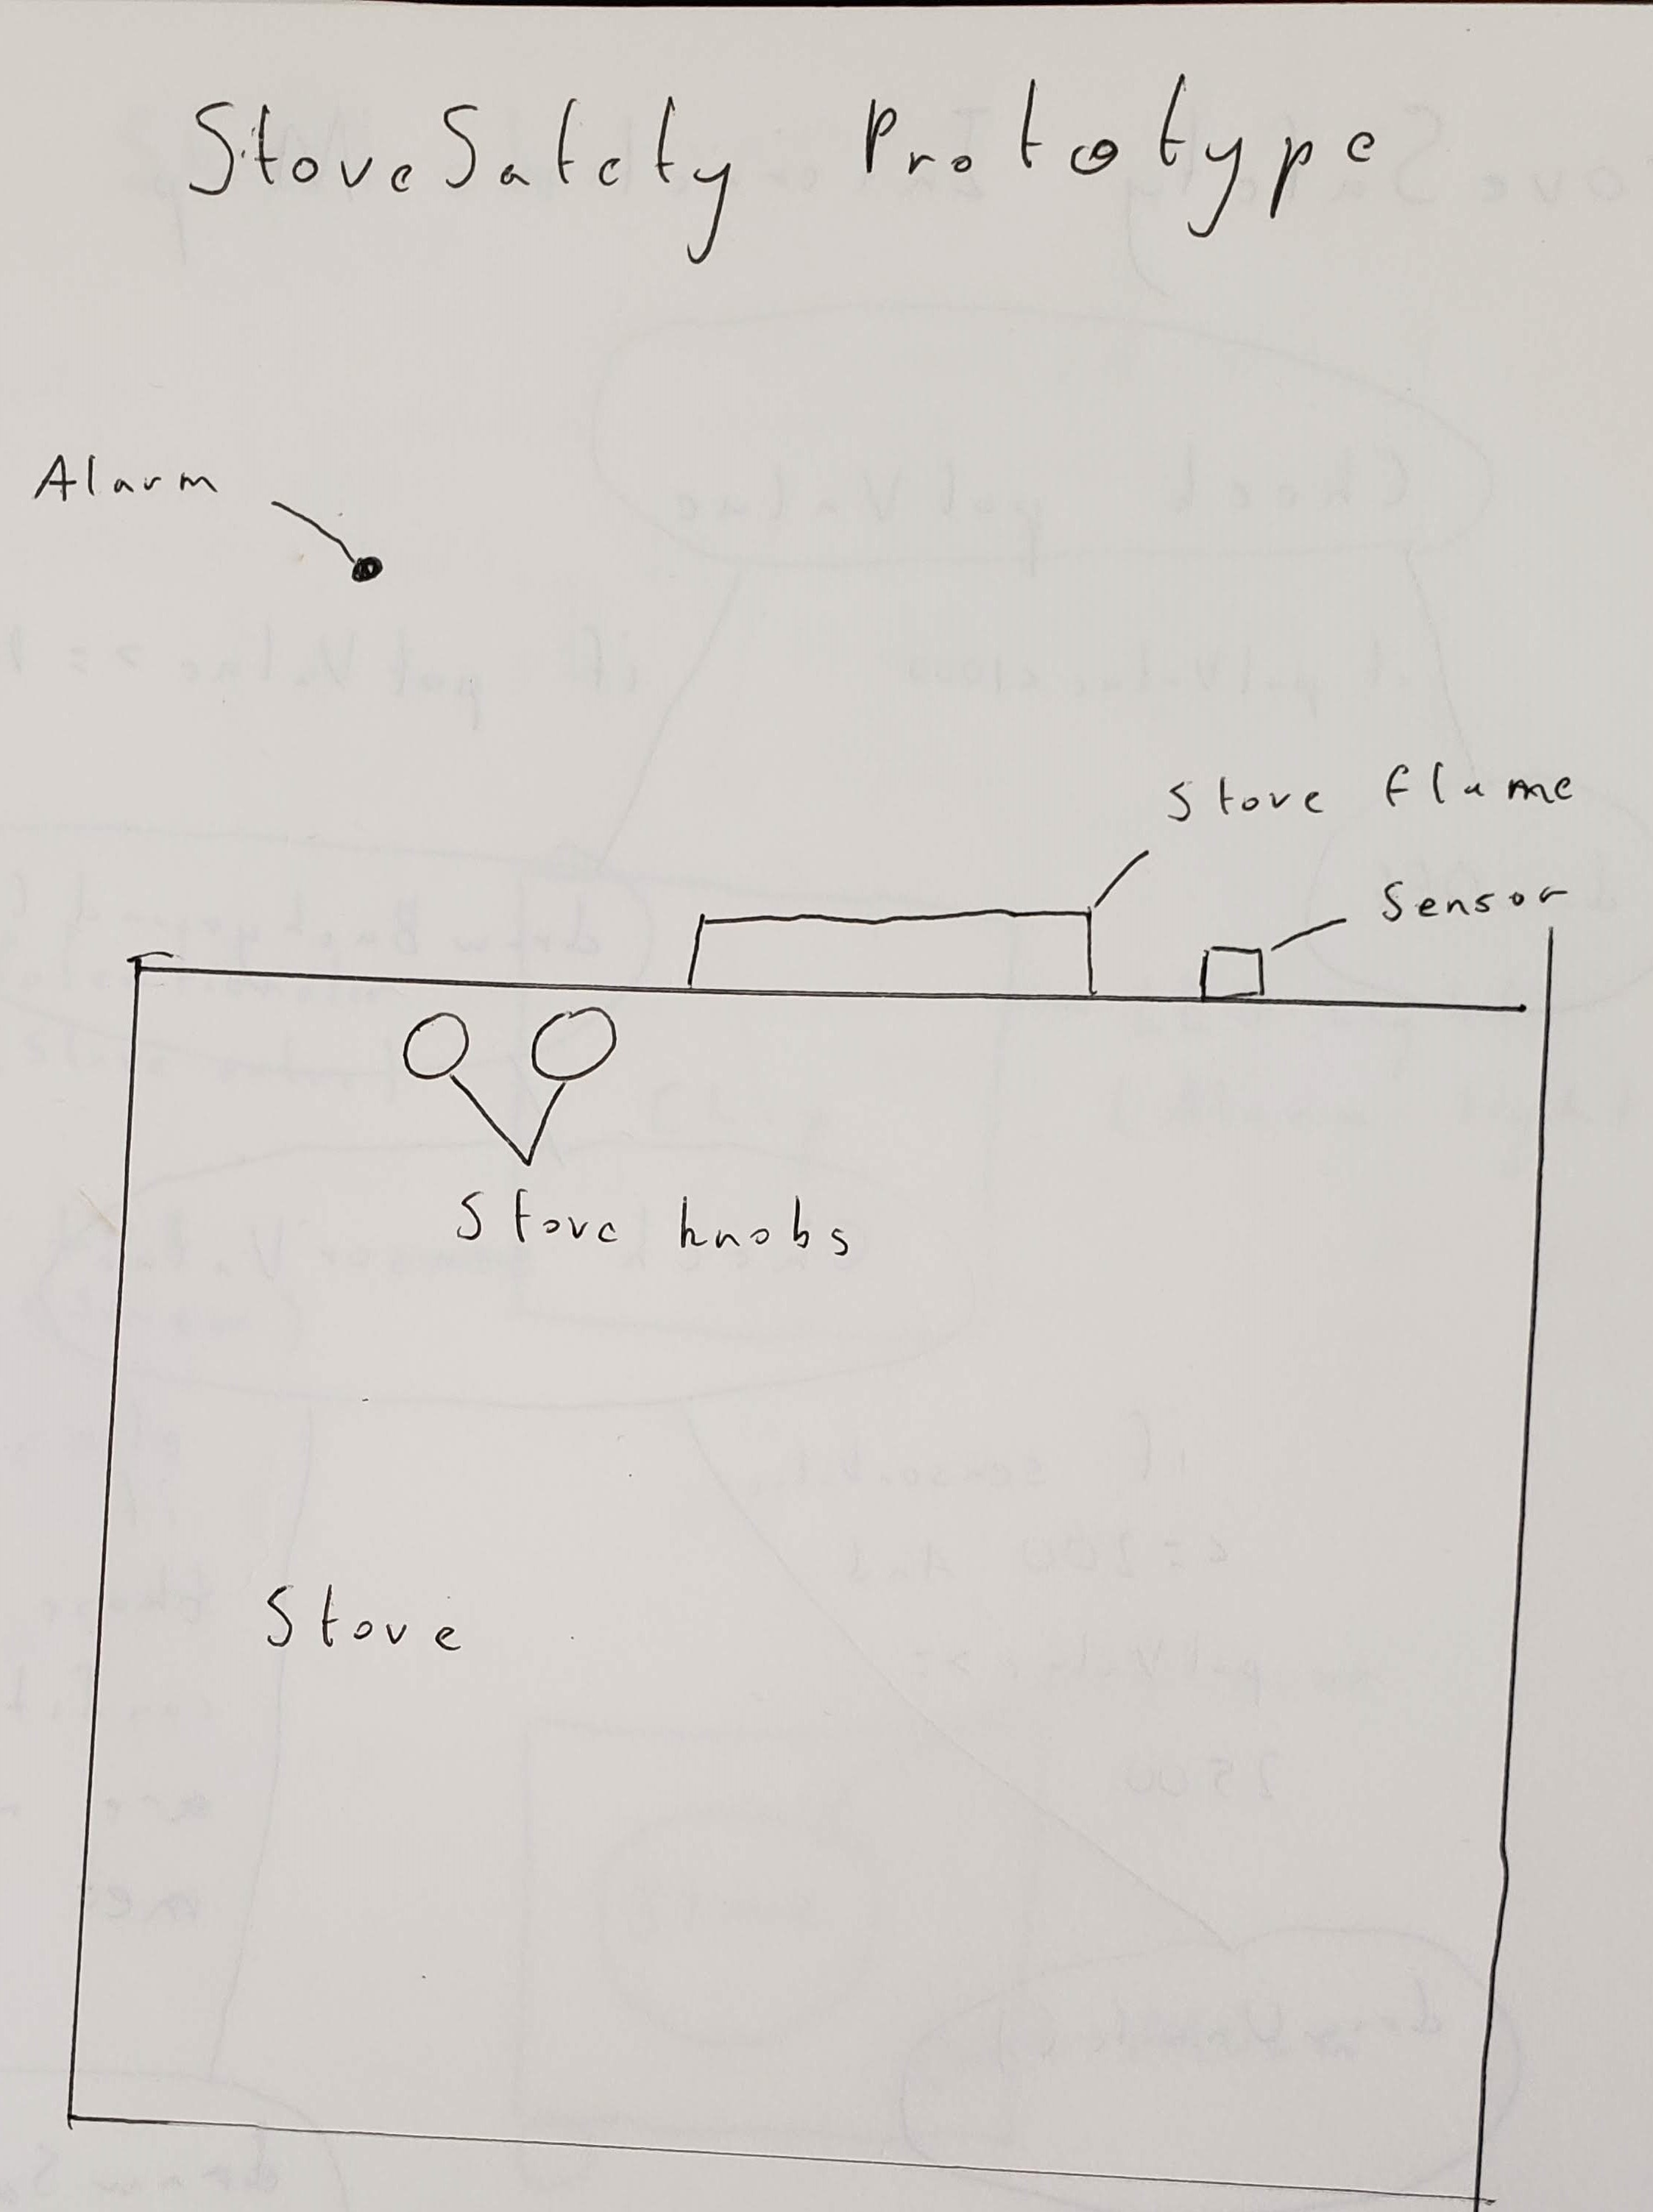 StoveSafety Prototype
Alarm
Stove flame
Sensor
Stove knobs
Stove